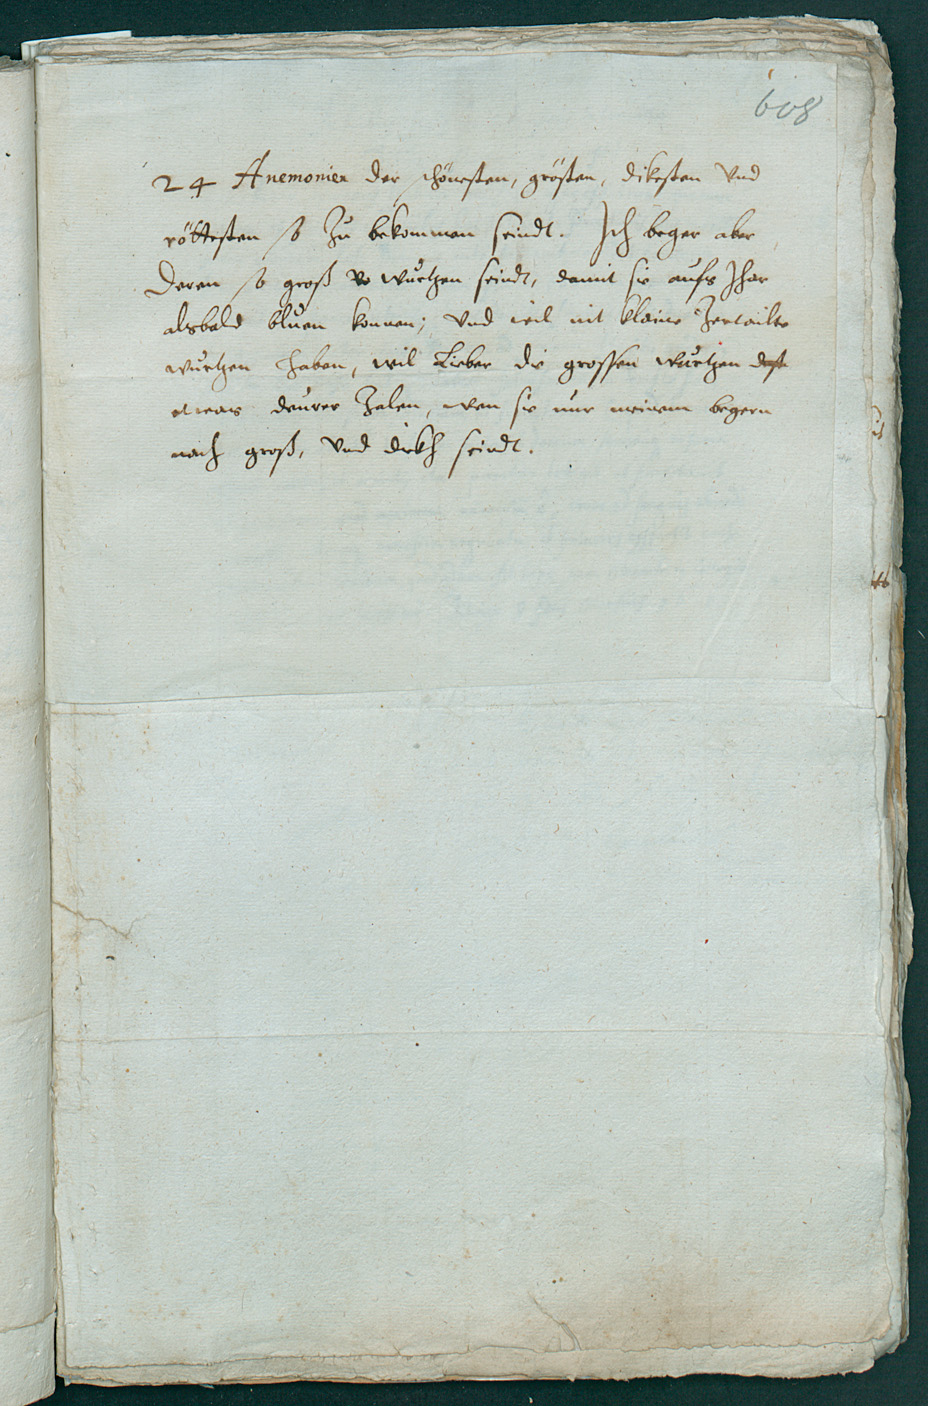 608
24 Anemonien der schönesten, grösten, dikesten Vnd
röttesten so Zu bekommen seindt. Ich beger aber
deren so groß wurtzen seindt, damit sie aufs Jhar
alsbald bluen konnen; Vnd wil nit kleine Zertailte
wurtzen haben, wil Lieber die grossen wurtzen dest
etwas deurer Zalen, wen sie nur meinem begern
nach groß, Vnd dickh seindt.